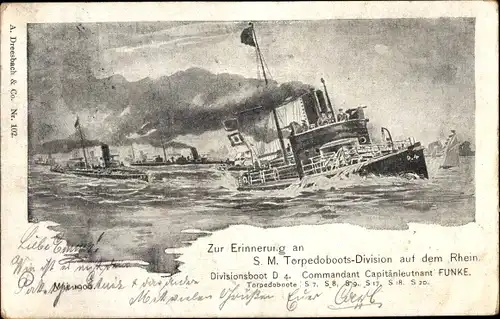 A. Dreesbach & Co. Nr. 102.
D.4
Zur Erinnerung an
S. M. Torpedoboots-Division auf dem Rhein.
Divisionsboot D 4. Commandant Capitänleutnant FUNKE.
Torpedoboote S 7. S 8. S 9. S 17. S 18. S 20.
Mai 1900.
Liebe
Wie ist es mit dem
Mit vielen Grüßen Euer Carl